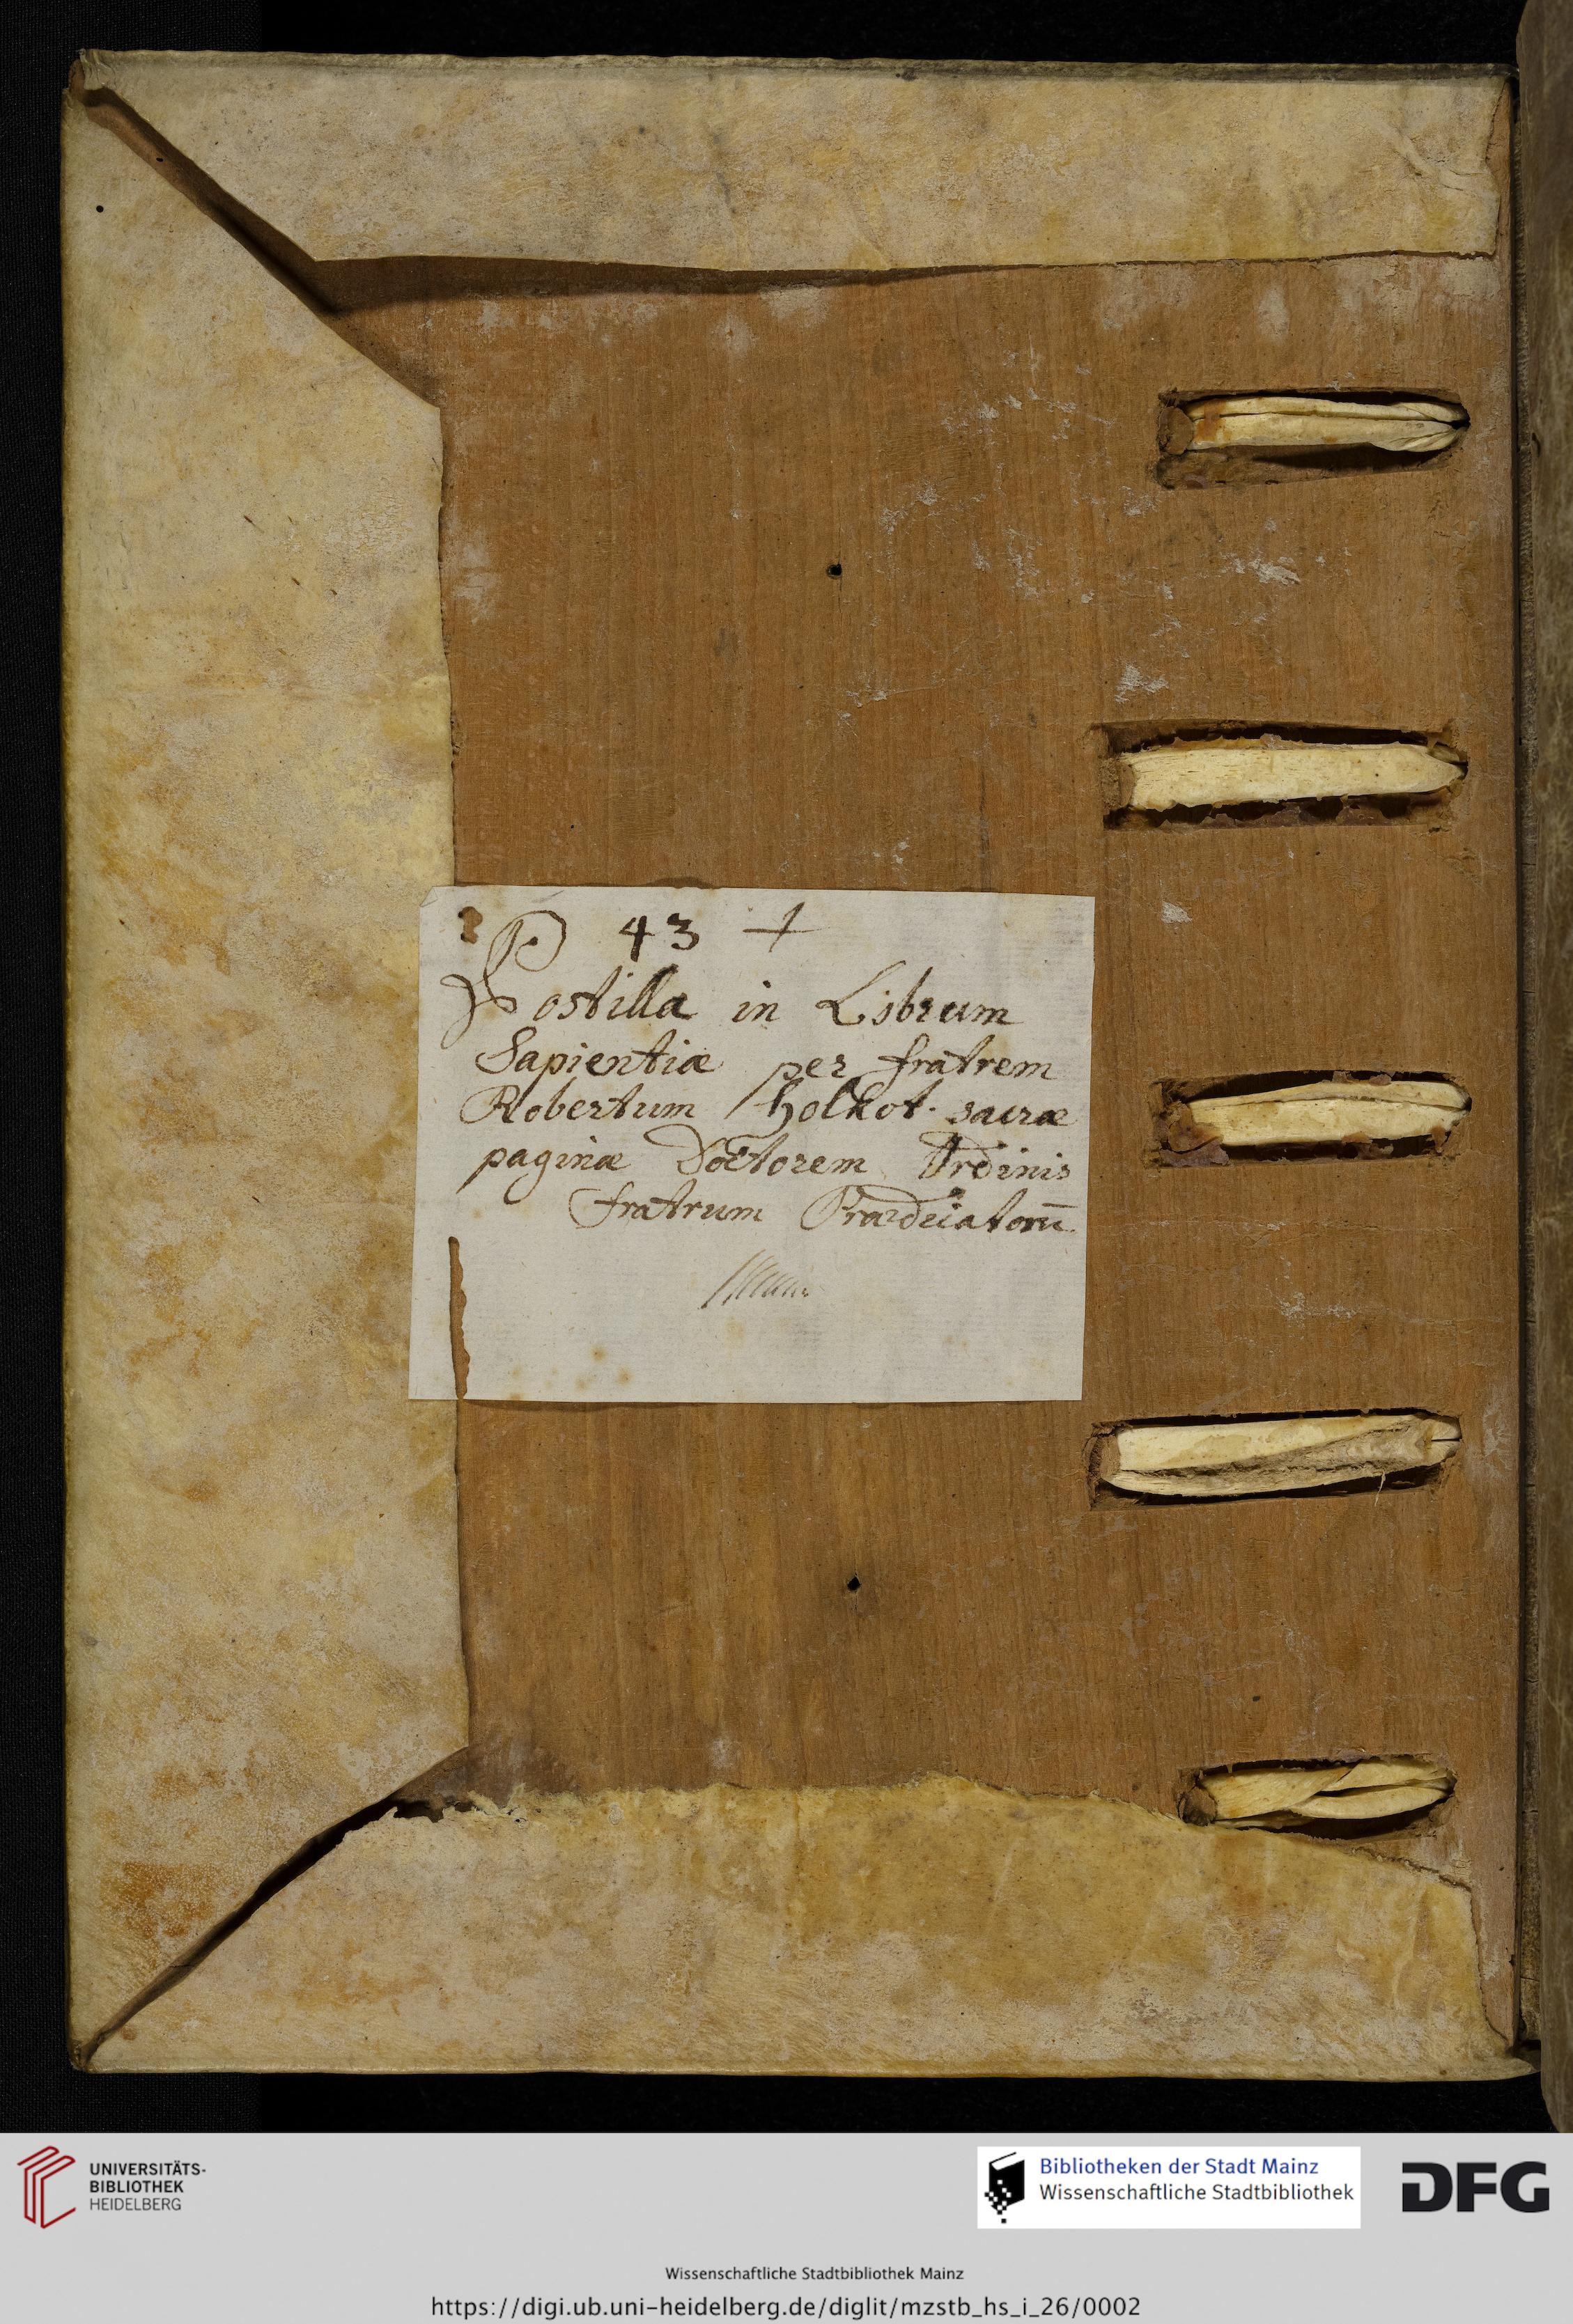 43 +
Postilla in Librum
Sapientiæ per fratrem
Robertum Holkot. sacræ
paginæ Doctorem Ordinis
fratrum Prædicatorū
UNIVERSITÄTS-
BIBLIOTHEK
HEIDELBERG
Bibliotheken der Stadt Mainz
Wissenschaftliche Stadtbibliothek
DFG
Wissenschaftliche Stadtbibliothek Mainz
https://digi.ub.uni-heidelberg.de/diglit/mzstb_hs_i_26/0002